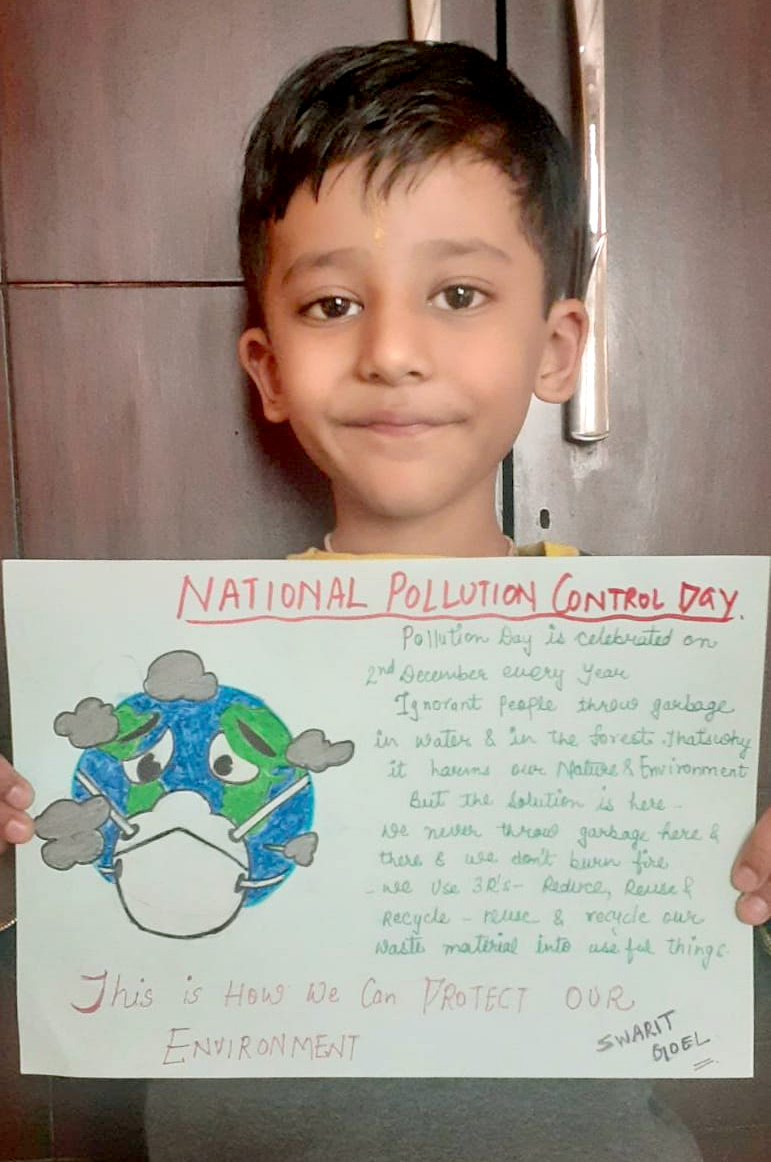 NATIONAL POLLUTION CONTROL DAY.
Pollution Day is celebrated on
2nd December every year
Ignorant People throw garbage
in water & in the forest. Thatswhy
it harms our Nature & Environment
But the solution is here -
We never throw garbage here &
there & we don't burn fire
- We Use 3R's - Reduce, Reuse &
Recycle - reuse & recycle our
waste material into useful things.
This is How We Can PROTECT OUR
ENVIRONMENT
SWARIT
GOEL